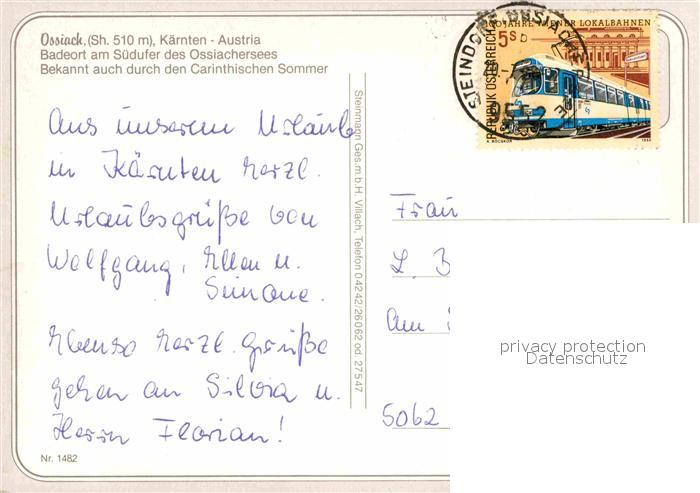 Ossiach, (Sh. 510 m), Kärnten - Austria
Badeort am Südufer des Ossiachersees
Bekannt auch durch den Carinthischen Sommer
Aus unserem Urlaub
in Kärnten herzl.
Urlaubsgrüße von
Wolfgang, Ellen u.
Simone.
Ebenso herzl. Grüße
gehen an Silvia u.
Herrn Florian!
Nr. 1482
Steinmann Ges.m.b.H. Villach, Telefon 04242/26062 od. 27547
JAHRE WIENER LOKALBAHNEN
5s
REPUBLIK ÖSTERREICH
STEINDORF
Frau
L. B
Am
5062
privacy protection
Datenschutz